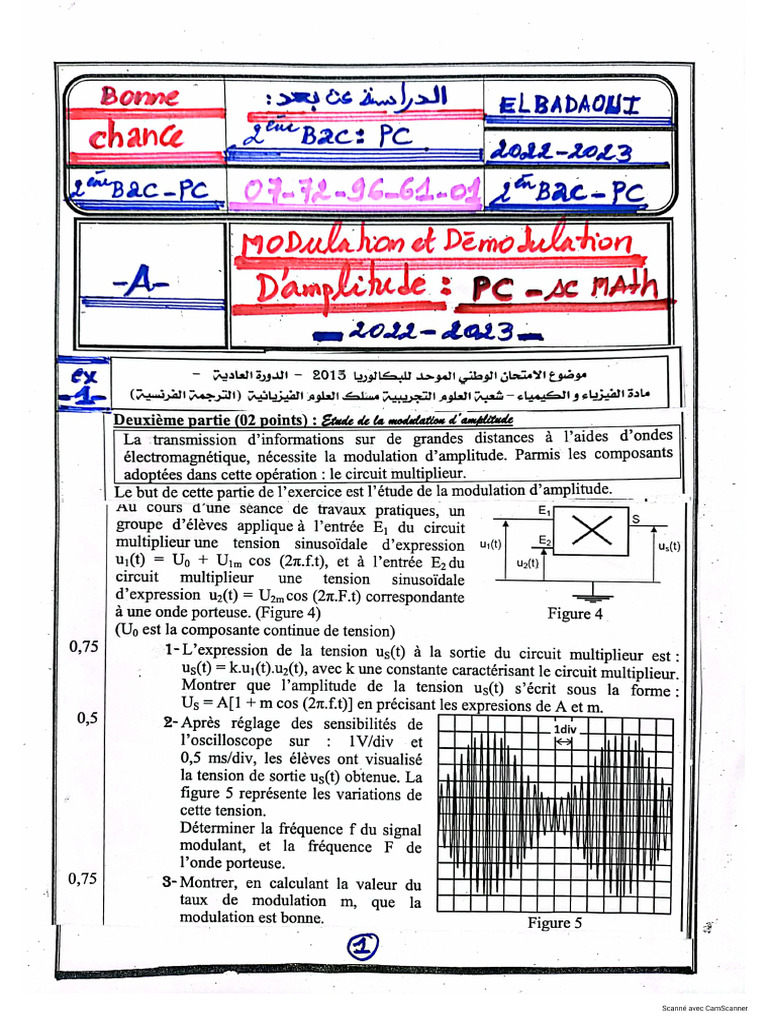 Bonne
chance
الدراسة عن بعد :
2ème Bac : PC
ELBADAOUI
2022-2023
2ème Bac-PC
07-72-96-61-01
2èm Bac-PC
-A-
MODulation et Démodulation
D'amplitude : PC - sc MATH
- 2022-2023 -
ex
-1-
موضوع الامتحان الوطني الموحد للبكالوريا 2013 - الدورة العادية -
مادة الفيزياء و الكيمياء – شعبة العلوم التجريبية مسلك العلوم الفيزيائية (الترجمة الفرنسية)
Deuxième partie (02 points) : Etude de la modulation d'amplitude
La transmission d'informations sur de grandes distances à l'aides d'ondes
électromagnétique, nécessite la modulation d'amplitude. Parmis les composants
adoptées dans cette opération : le circuit multiplieur.
Le but de cette partie de l'exercice est l'étude de la modulation d'amplitude.
Au cours d'une séance de travaux pratiques, un
groupe d'élèves applique à l'entrée E1 du circuit
multiplieur une tension sinusoïdale d'expression
u1(t) = U0 + U1m cos (2π.f.t), et à l'entrée E2 du
circuit multiplieur une tension sinusoïdale
d'expression u2(t) = U2m cos (2π.F.t) correspondante
à une onde porteuse. (Figure 4)
(U0 est la composante continue de tension)
E1
S
E2
u1(t)
u2(t)
us(t)
Figure 4
0,75
1- L'expression de la tension uS(t) à la sortie du circuit multiplieur est :
uS(t) = k.u1(t).u2(t), avec k une constante caractérisant le circuit multiplieur.
Montrer que l'amplitude de la tension uS(t) s'écrit sous la forme :
US = A[1 + m cos (2π.f.t)] en précisant les expresions de A et m.
0,5
2- Après réglage des sensibilités de
l'oscilloscope sur : 1V/div et
0,5 ms/div, les élèves ont visualisé
la tension de sortie uS(t) obtenue. La
figure 5 représente les variations de
cette tension.
Déterminer la fréquence f du signal
modulant, et la fréquence F de
l'onde porteuse.
0,75
3- Montrer, en calculant la valeur du
taux de modulation m, que la
modulation est bonne.
1div
Figure 5
1
Scanné avec CamScanner